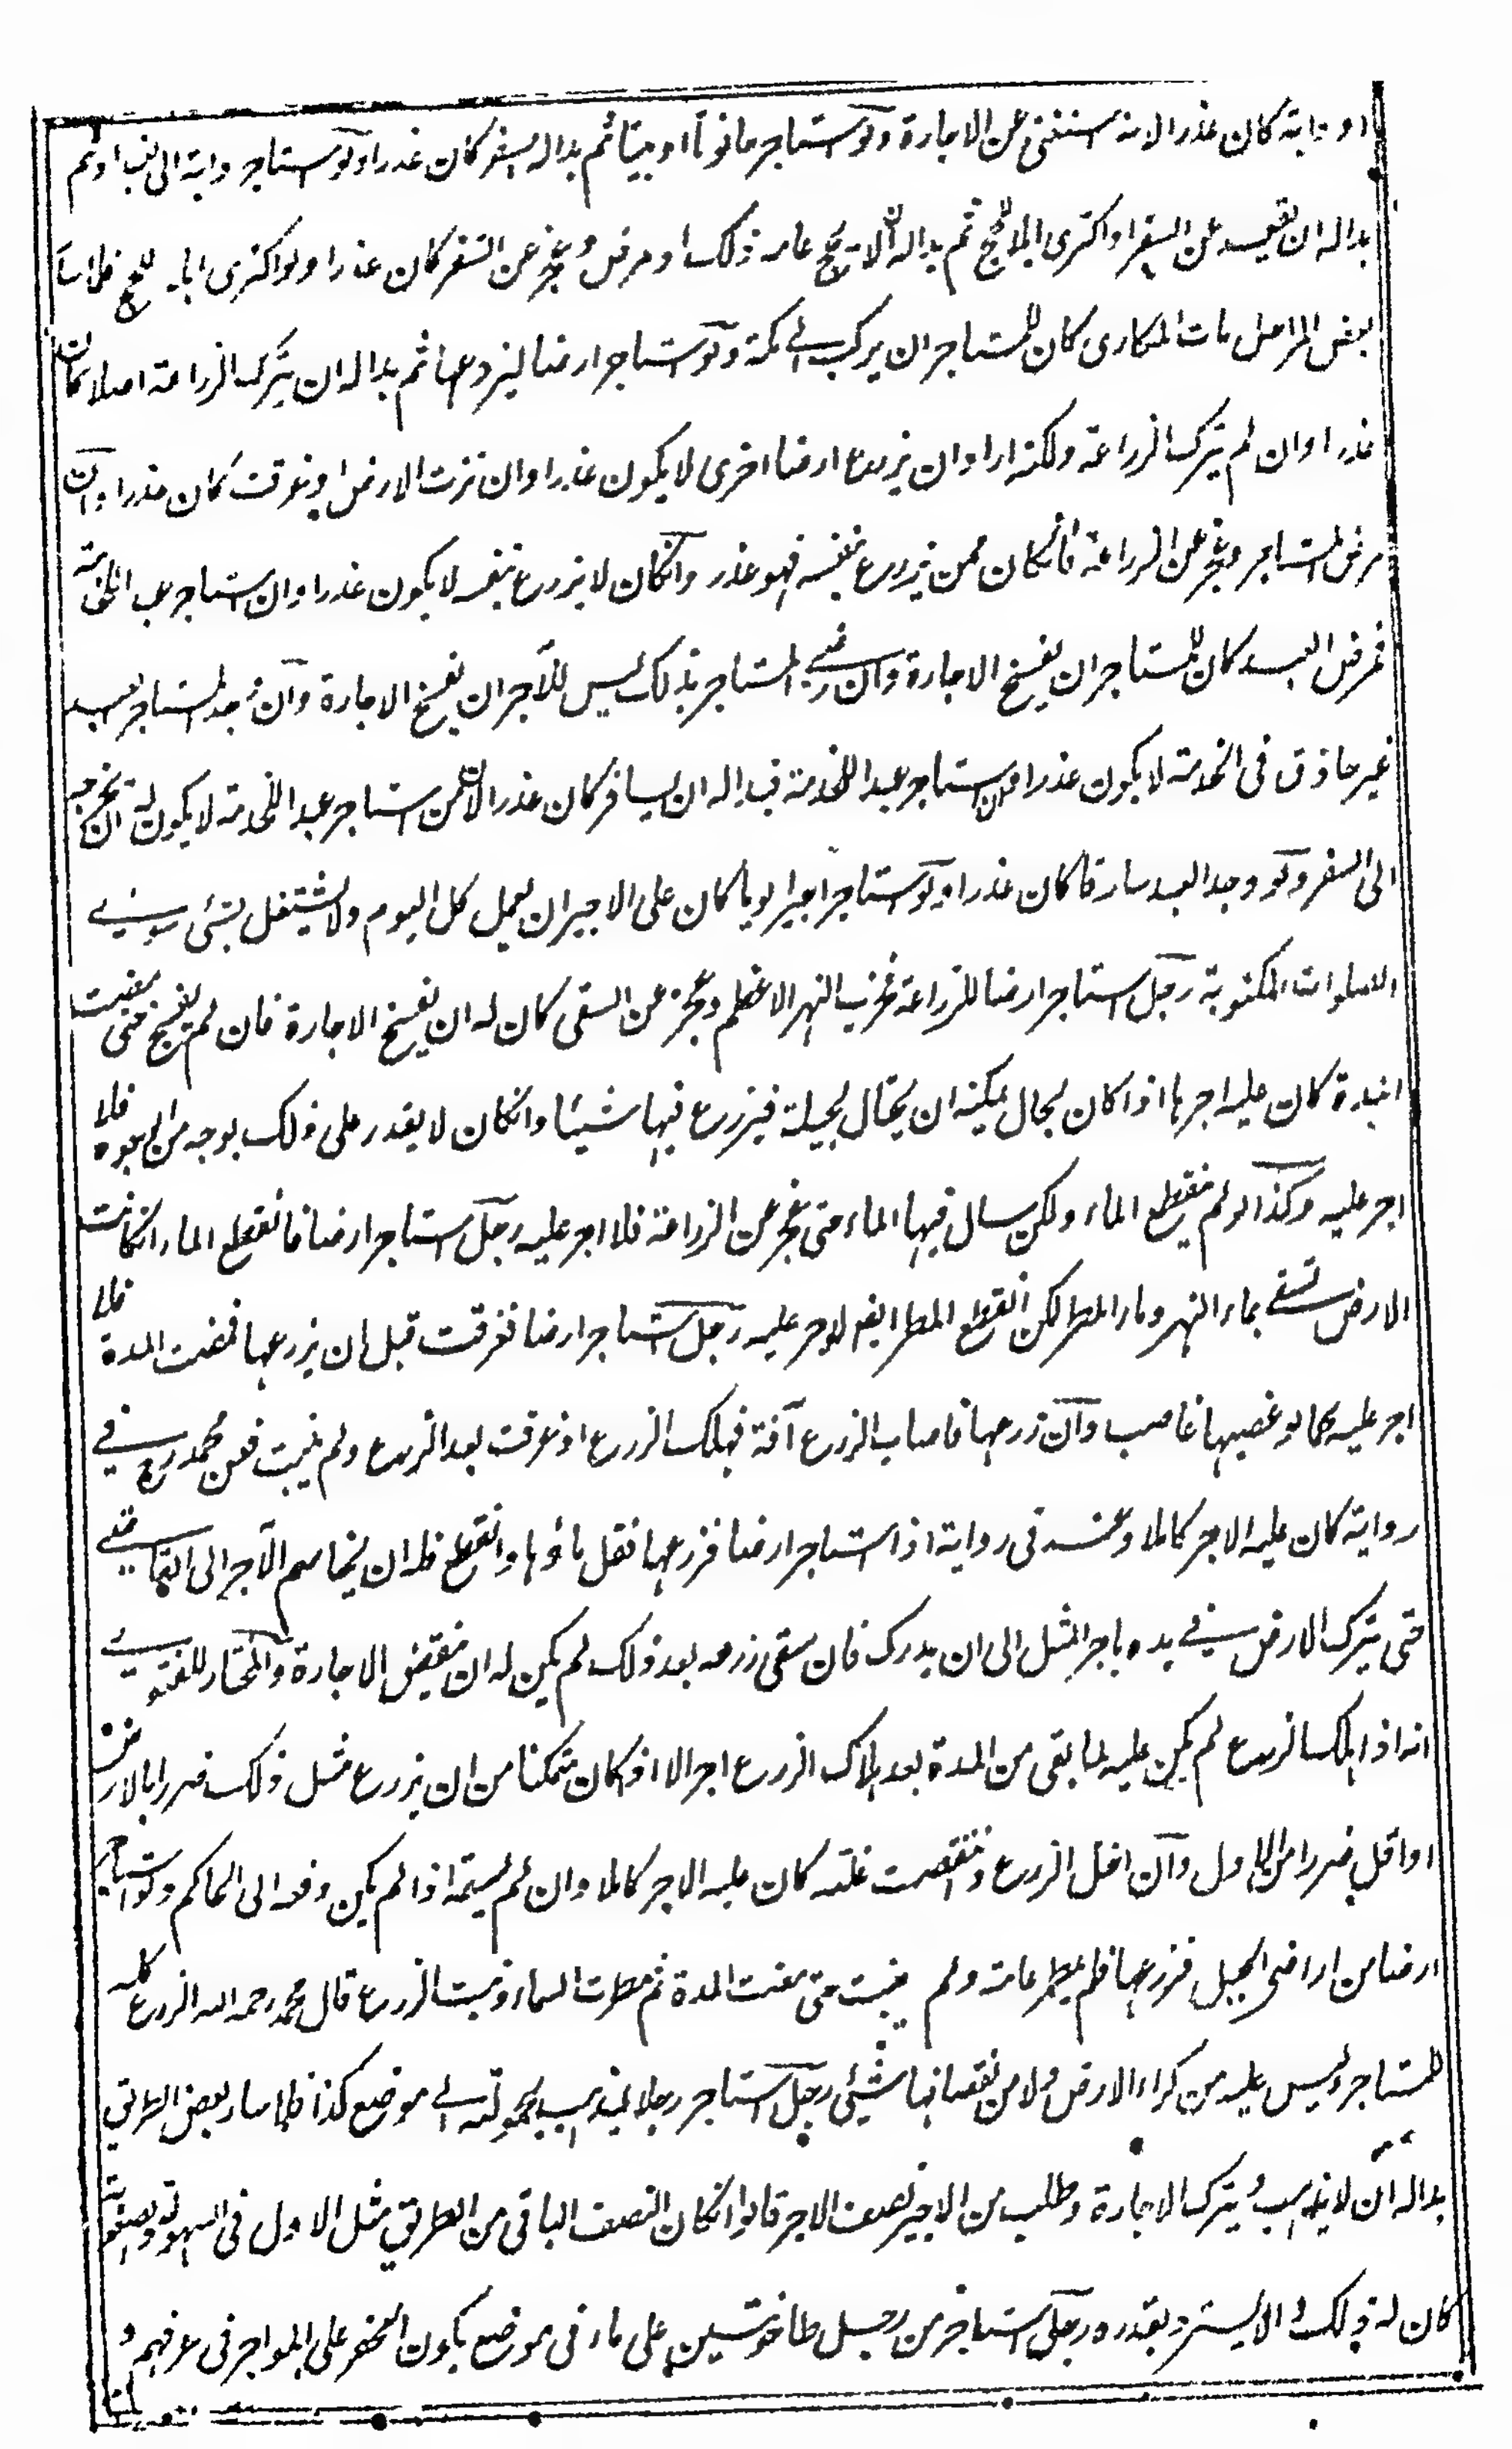 او دابة كان عذرا لانه استغنى عن الاجارة ولو استاجر حانوتا او بيتا ثم بدا له السفر كان عذرا ولو استاجر دابة الى بغداد ثم
بدا له ان يقعد عن السفر او اكترى ابلا للحج ثم بدا له ان لا يحج عامه ذلك او مرض وعجز عن السفر كان عذرا ولو اكترى ابلا للحج فلما سار
بعض المراحل مات المكارى كان للمستاجر ان يركب الى مكة ولو استاجر ارضا ليزرعها ثم بدا له ان يترك الزراعة اصلا كان
عذرا وان لم يترك الزراعة ولكنه اراد ان يزرع ارضا اخرى لا يكون عذرا وان نزت الارض او غرقت كان عذرا وان
مرض المستاجر وعجز عن الزراعة فانكان ممن يزرع بنفسه فهو عذر وانكان لا يزرع بنفسه لا يكون عذرا وان استاجر عبدا للخدمة
فمرض العبد كان للمستاجر ان يفسخ الاجارة وان رضى المستاجر بذلك ليس للآجر ان يفسخ الاجارة وان وجد المستاجر العبد
غير حاذق فى الخدمة لا يكون عذرا وان استاجر عبدا للخدمة فبدا له ان يسافر كان عذرا لان من استاجر عبدا للخدمة لا يكون له ان يخرجه
الى السفر ولو وجد العبد سارقا كان عذرا ولو استاجر اجيرا يوما كان على الاجير ان يعمل كل اليوم ولا يشتغل بشئ سوى
الصلوات المكتوبة رجل استاجر ارضا للزراعة فخرب النهر الاعظم وعجز عن السقى كان له ان يفسخ الاجارة فان لم يفسخ حتى مضت
المدة كان عليه اجرها اذا كان بحال يمكنه ان يحتال بحيلة فيزرع فيها شيئا وانكان لا يقدر على ذلك بوجه من الوجوه فلا
اجر عليه وكذا لو لم ينقطع الماء ولكن سال فيها الماء حتى عجز عن الزراعة فلا اجر عليه رجل استاجر ارضا فانقطع الماء انكانت
الارض تسقى بماء النهر وماء المطر لكن انقطع المطر ايضا لا اجر عليه رجل استاجر ارضا فغرقت قبل ان يزرعها فمضت المدة فلا
اجر عليه كما لو غصبها غاصب وان زرعها فاصاب الزرع آفة فهلك الزرع او غرقت بعد الزرع ولم ينبت فعن محمد رح فى
رواية كان عليه الاجر كاملا وعنه فى رواية اذا استاجر ارضا فزرعها فقل ماؤها وانقطع فله ان يخاصم الآجر الى القاضى
حتى يترك الارض فى يده باجر المثل الى ان يدرك فان سقى زرعه بعد ذلك لم يكن له ان ينقض الاجارة والمختار للفتوى
انه اذا هلك الزرع لم يكن عليه لما بقى من المدة بعد هلاك الزرع اجر الا اذا كان متمكنا من ان يزرع مثل ذلك ضررا بالارض
او اقل ضررا من الاول وان اختل الزرع وانتقصت غلته كان عليه الاجر كاملا وان لم يستمه اذا لم يكن دفعه الى الحاكم ولو استاجر
ارضا من اراضى الجبل فزرعها فلم يمطر عامه ولم ينبت حتى مضت المدة ثم مطرت السماء ونبت الزرع قال محمد رحمه الله الزرع كله
للمستاجر وليس عليه من كراء الارض ولا من نقصانها شئ رجل استاجر رجلا ليذهب بحمولته الى موضع كذا فلما سار بعض الطريق
بدا له ان لا يذهب ويترك الاجارة وطلب من الاجير نصف الاجر قالوا انكان النصف الباقى من الطريق مثل الاول فى السهولة والصعوبة
كان له ذلك والا يسترد بقدره رجل استاجر من رجل طاحونتين على ماء فى موضع يكون الحفر على المواجر فى عرفهم و